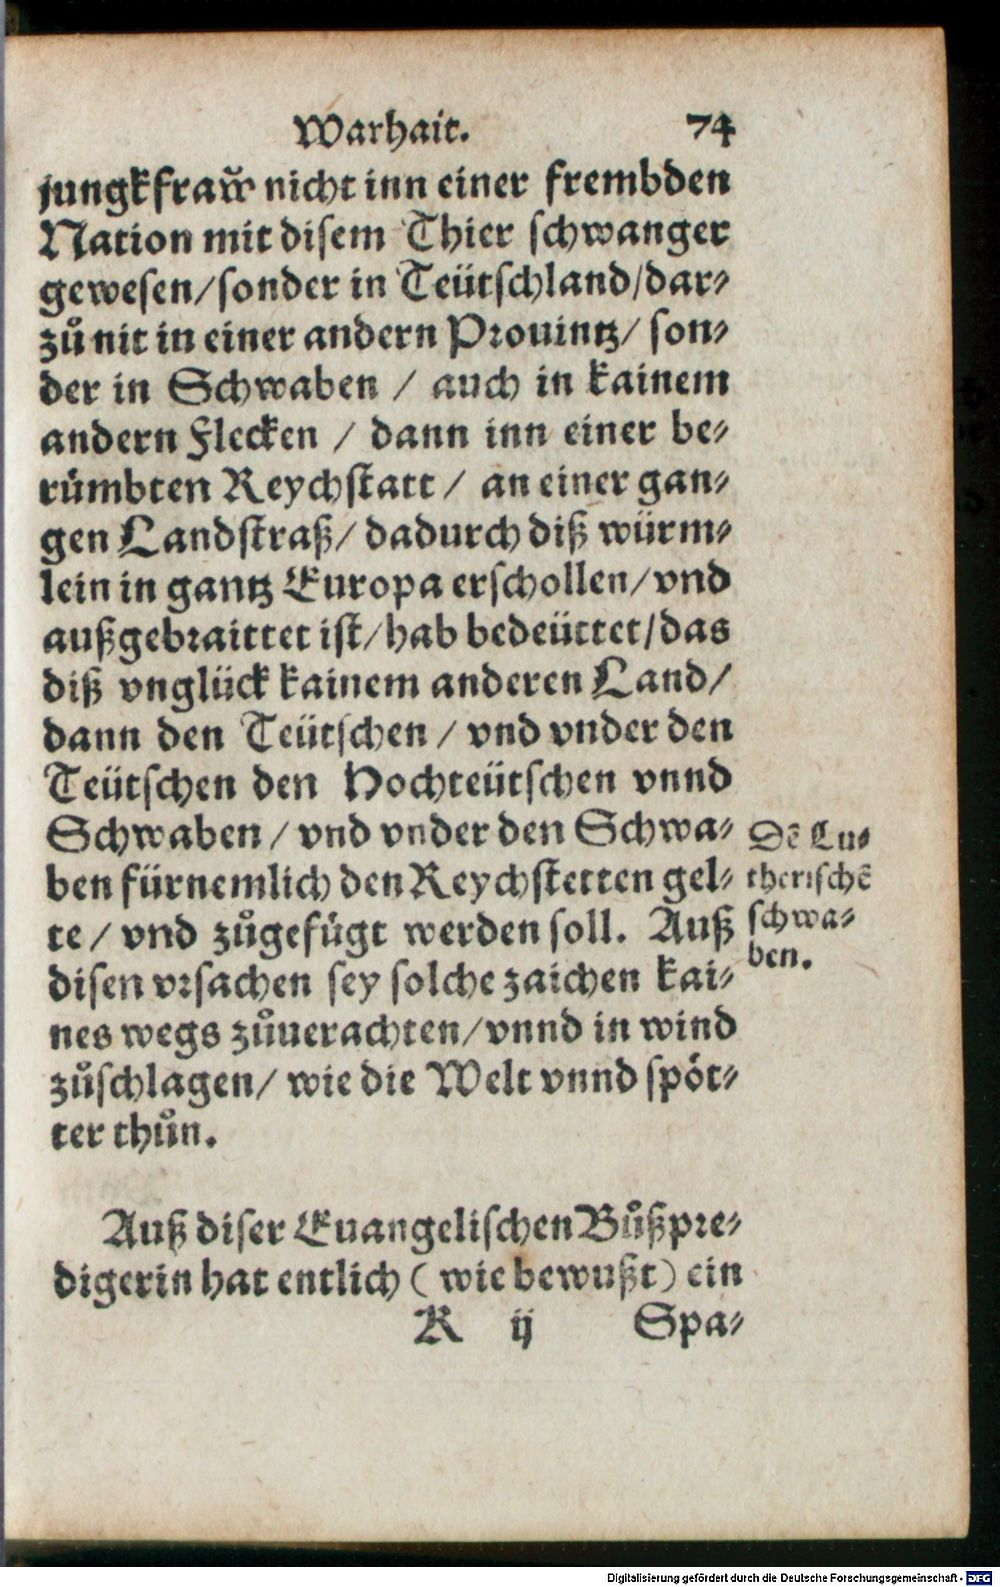 Warhait. 74
jungkfraw̃ nicht inn einer frembden
Nation mit disem Thier schwanger
gewesen/sonder in Teütschland/dar⸗
zů nit in einer andern Prouintz/ son⸗
der in Schwaben / auch in kainem
andern Flecken / dann inn einer be⸗
rümbten Reychstatt / an einer gan⸗
gen Landstraß/ dadurch diß würm⸗
lein in gantz Europa erschollen/vnd
außgebraittet ist/hab bedeüttet/das
diß vnglück kainem anderen Land/
dann den Teütschen / vnd vnder den
Teütschen den Hochteütschen vnnd
Schwaben / vnd vnder den Schwa⸗
ben fürnemlich den Reychstetten gel⸗
te / vnd zůgefügt werden soll. Auß
disen vrsachen sey solche zaichen kai⸗
nes wegs zůuerachten/vnnd in wind
zůschlagen/ wie die Welt vnnd spöt⸗
ter thůn.
Dẽ Lu⸗
therischẽ
schwa⸗
ben.
Auß diser Euangelischen Bůßpre⸗
digerin hat entlich ( wie bewußt) ein
K ij Spa⸗
Digitalisierung gefördert durch die Deutsche Forschungsgemeinschaft - DFG